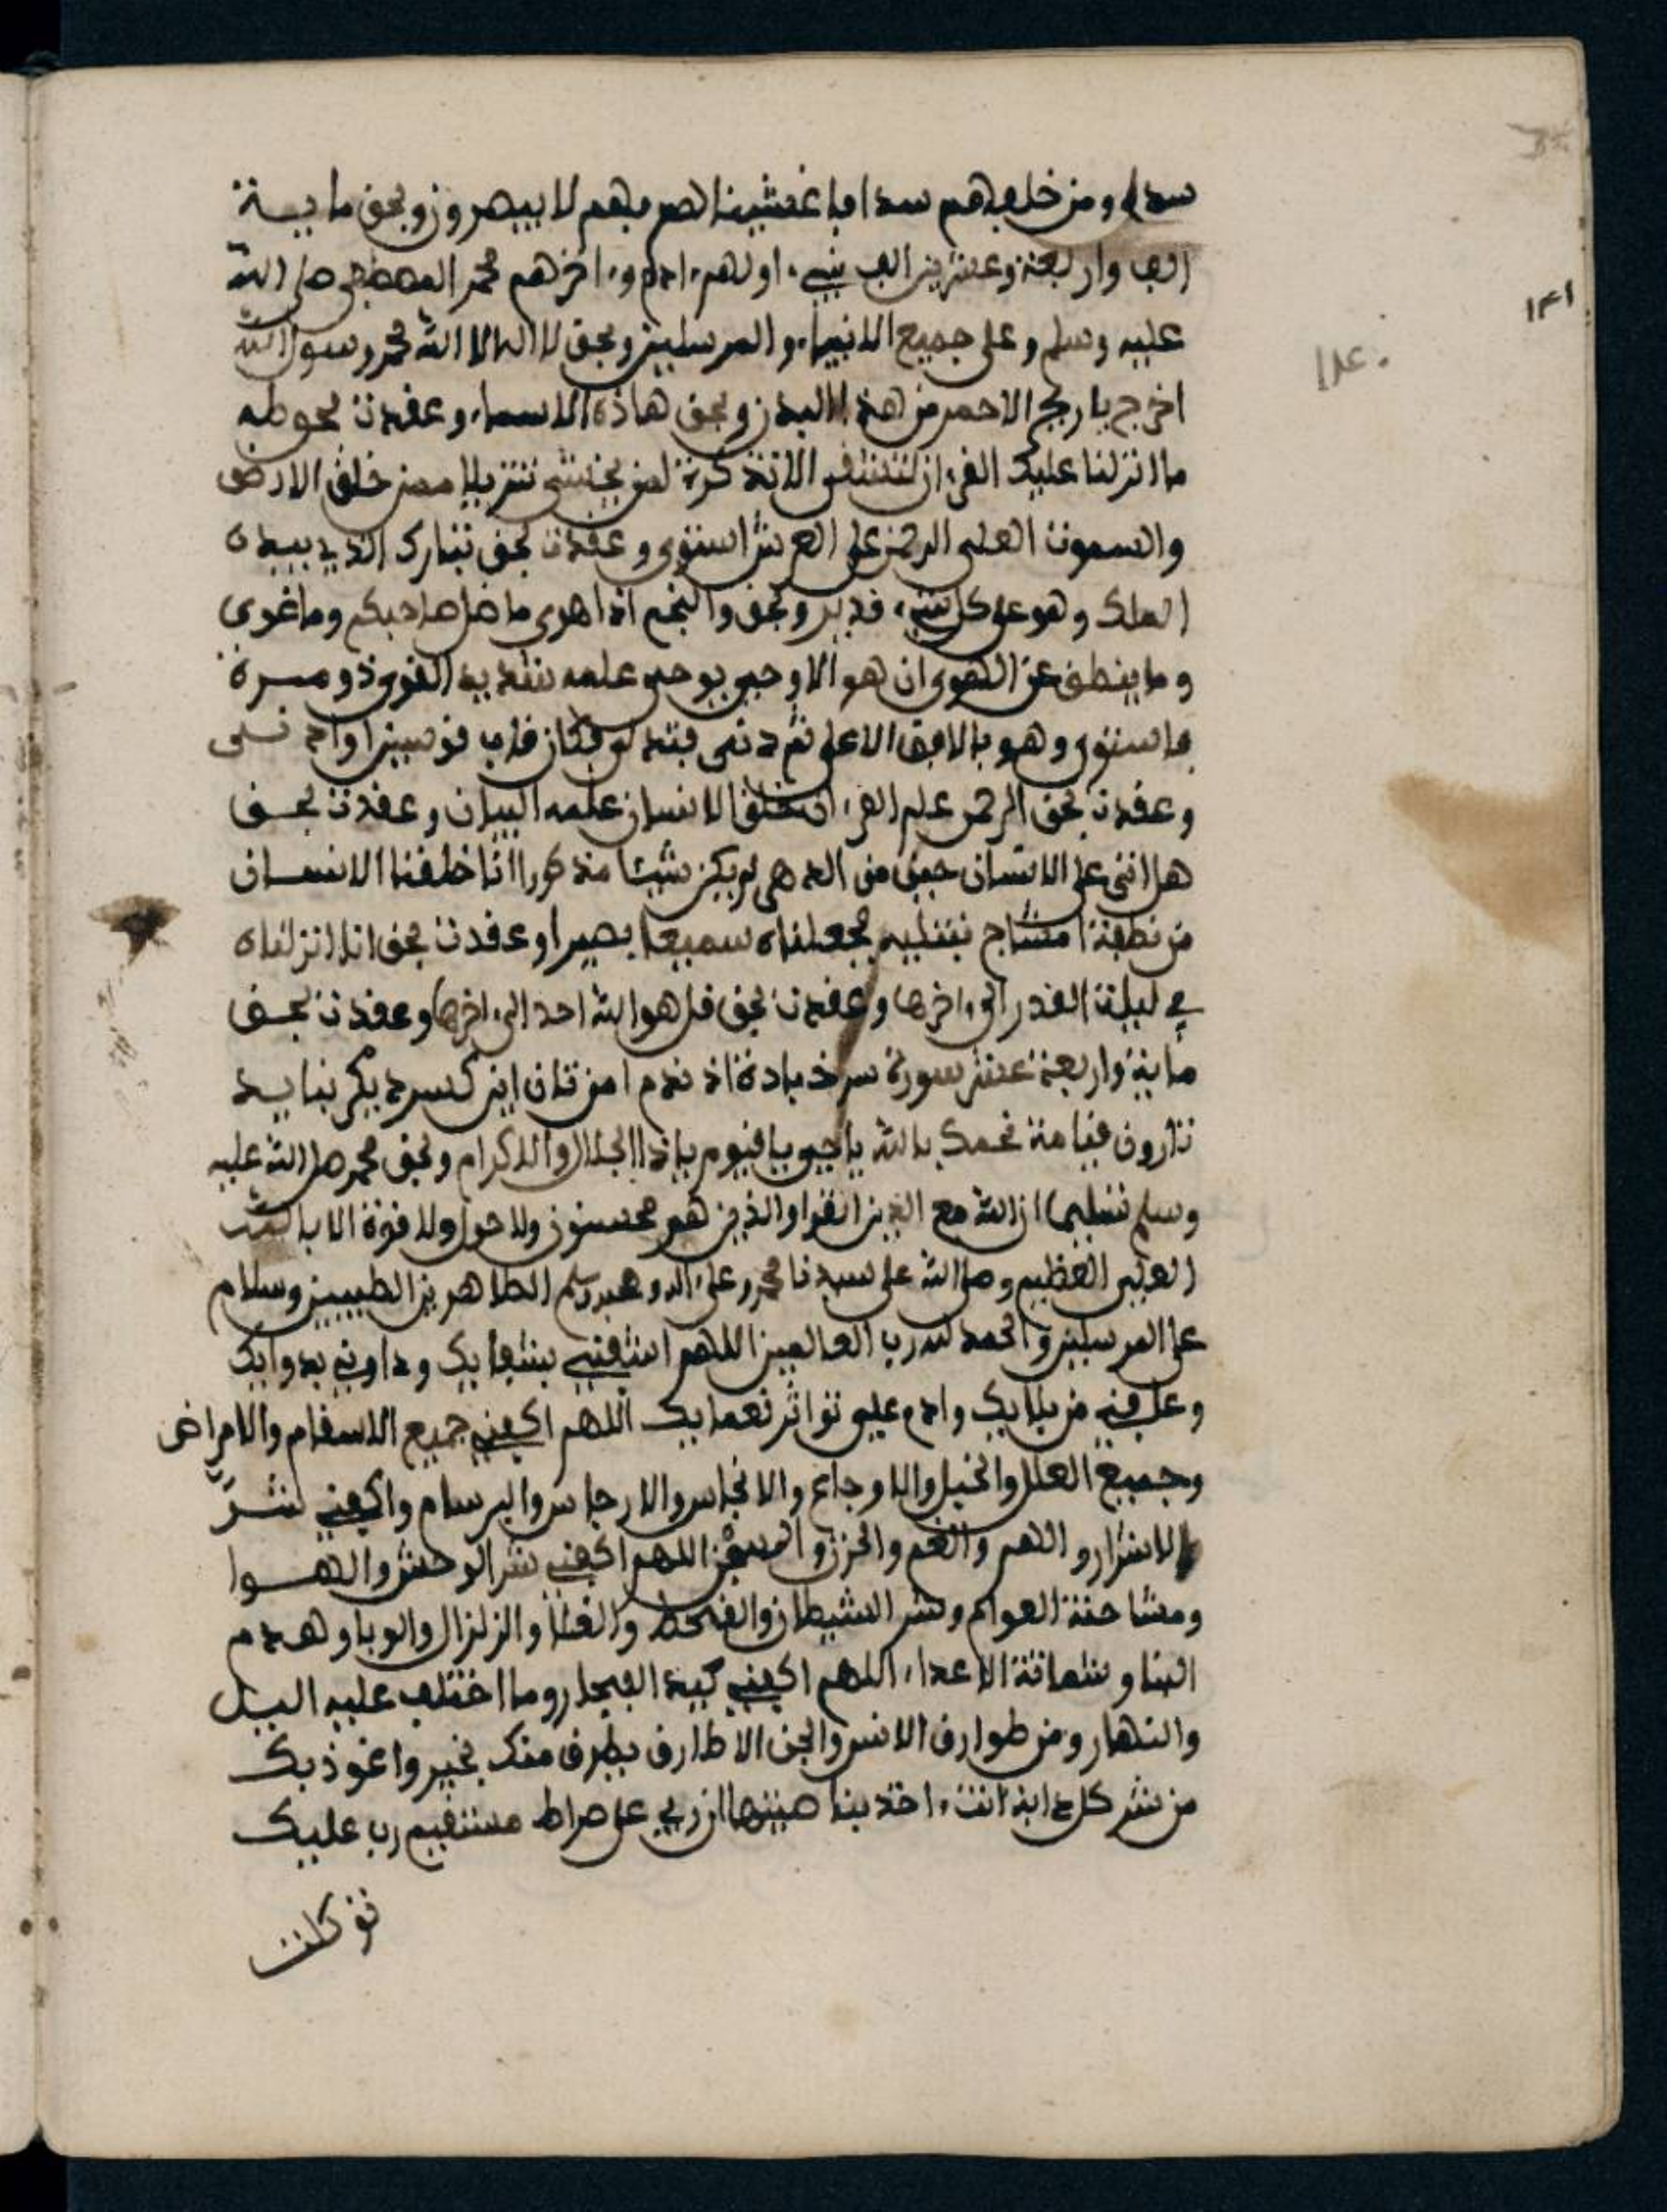 سدا ومن خلفهم سدا فاغشيناهم فهم لا يبصرون وبحق ماية
الف واربعة وعشرين الف نبي اولهم ءادم وءاخرهم محمد المصطفى صلى الله
عليه وسلم وعلى جميع الانبياء والمرسلين وبحق لا اله الا الله محمد رسول الله
اخرج يا ريح الاحمر من هذا البدن وبحق هاذه الاسماء وعقدت بحق طه
ما انزلنا عليك القرءان لتشقى الا تذكرة لمن يخشى تنزيلا ممن خلق الارض
والسموت العلى الرحمن على العرش استوى وعقدت بحق تبارك الذي بيده
الملك وهو على كل شيء قدير وبحق والنجم اذا هوى ما ضل صاحبكم وما غوى
وما ينطق عن الهوى ان هو الا وحي يوحى علمه شديد القوى ذو مرة
فاستوى وهو بالافق الاعلى ثم دنى فتدلى فكان قاب قوسين او ادنى
وعقدت بحق الرحمن علم القرءان خلق الانسان علمه البيان وعقدت بحق
هل اتى على الانسان حين من الدهر لم يكن شيئا مذكورا انا خلقنا الانسان
من نطفة امشاج نبتليه فجعلناه سميعا بصيرا وعقدت بحق انا انزلناه
في ليلة القدر الى ءاخرها وعقدت بحق قل هو الله احد الى ءاخرها وعقدت بحق
ماية واربعة عشر سورة سرخ بادة
قيامة بحمدك يا الله يا حي يا قيوم يا ذا الجلال والاكرام وبحق محمد صلى الله عليه
وسلم تسليما ان الله مع الذين اتقوا والذين هم محسنون ولا حول ولا قوة الا بالله
العلي العظيم وصلى الله على سيدنا محمد وعلى ءاله وصحبه وسلم الطاهرين الطيبين وسلام
على المرسلين والحمد لله رب العالمين اللهم اشفني بشفايك وداوني بدوايك
وعافني من بلايك وادم علي تواتر نعمايك اللهم اكفني جميع الاسقام والامراض
وجميع العلل والخبل والاوجاع والانجاس والارجاس والبرسام واكفني شر
الاشرار والهم والغم والحزن والسقم اللهم اكفني شر الوحش والهوا
ومشاحنة العوام وشر الشيطان والقحط والغلا والزلزال والوبا وهدم
البنا وشماتة الاعداء اللهم اكفني كيد الفجار وما اختلف عليه اليل
والنهار ومن طوارق الانس والجن الا طارق يطرق منك بخير واعوذ بك
من شر كل دابة انت ءاخذ بناصيتها ان ربي على صراط مستقيم رب عليك
توكلت
١٣١